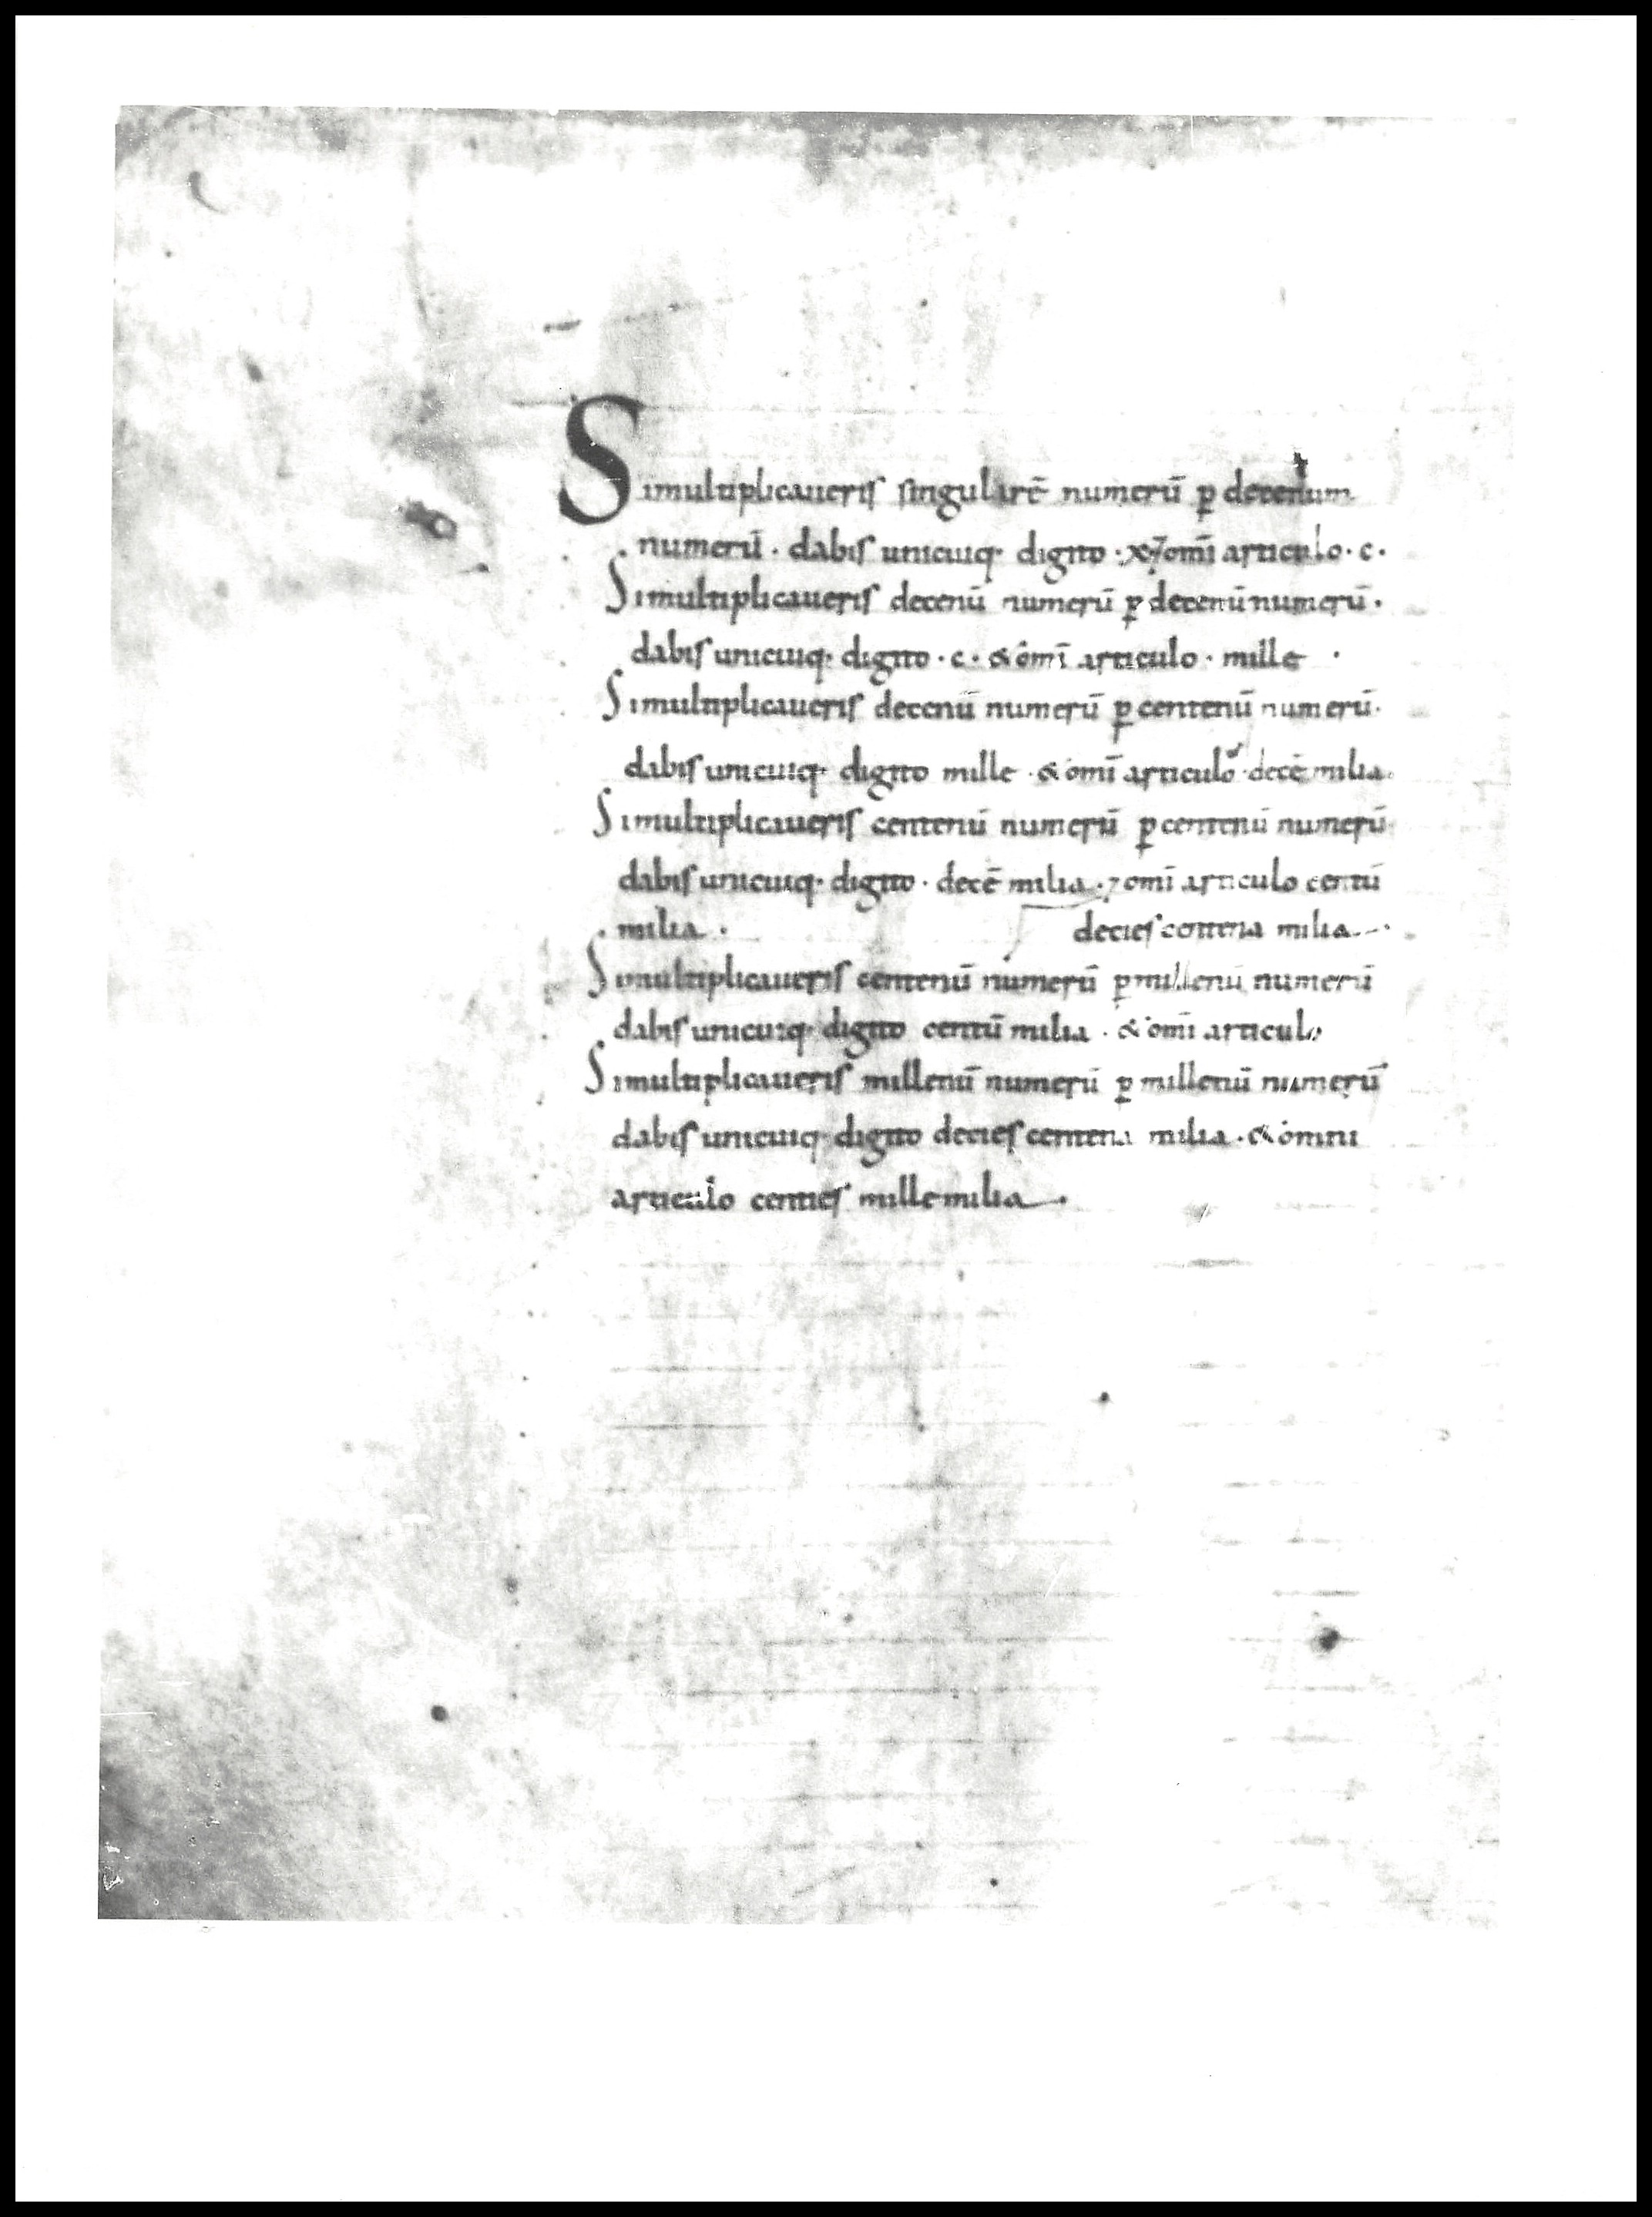 Simultiplicaueris singularē numerū ꝑ decenum
numerū · dabis unicuiq· digito · x ⁊ omī articulo · c ·
Simultiplicaueris decenū numerū ꝑ decenū numerū ·
dabis unicuiq· digito · c · & omī articulo · mille ·
Simultiplicaueris decenū numerū ꝑ centenū numerū ·
dabis unicuiq· digito mille · & omī articulo decē milia ·
Simultiplicaueris centenū numerū ꝑ centenū numerū ·
dabis unicuiq· digito · decē milia · ⁊ omī articulo centū
· milia · decies centena milia ·
Simultiplicaueris centenū numerū ꝑ millenū numerū
dabis unicuiq· digito centū milia · & omī articulo
Simultiplicaueris millenū numerū ꝑ millenū numerū
dabis unicuiq· digito decies centena milia · & omni
articulo centies mille milia ·